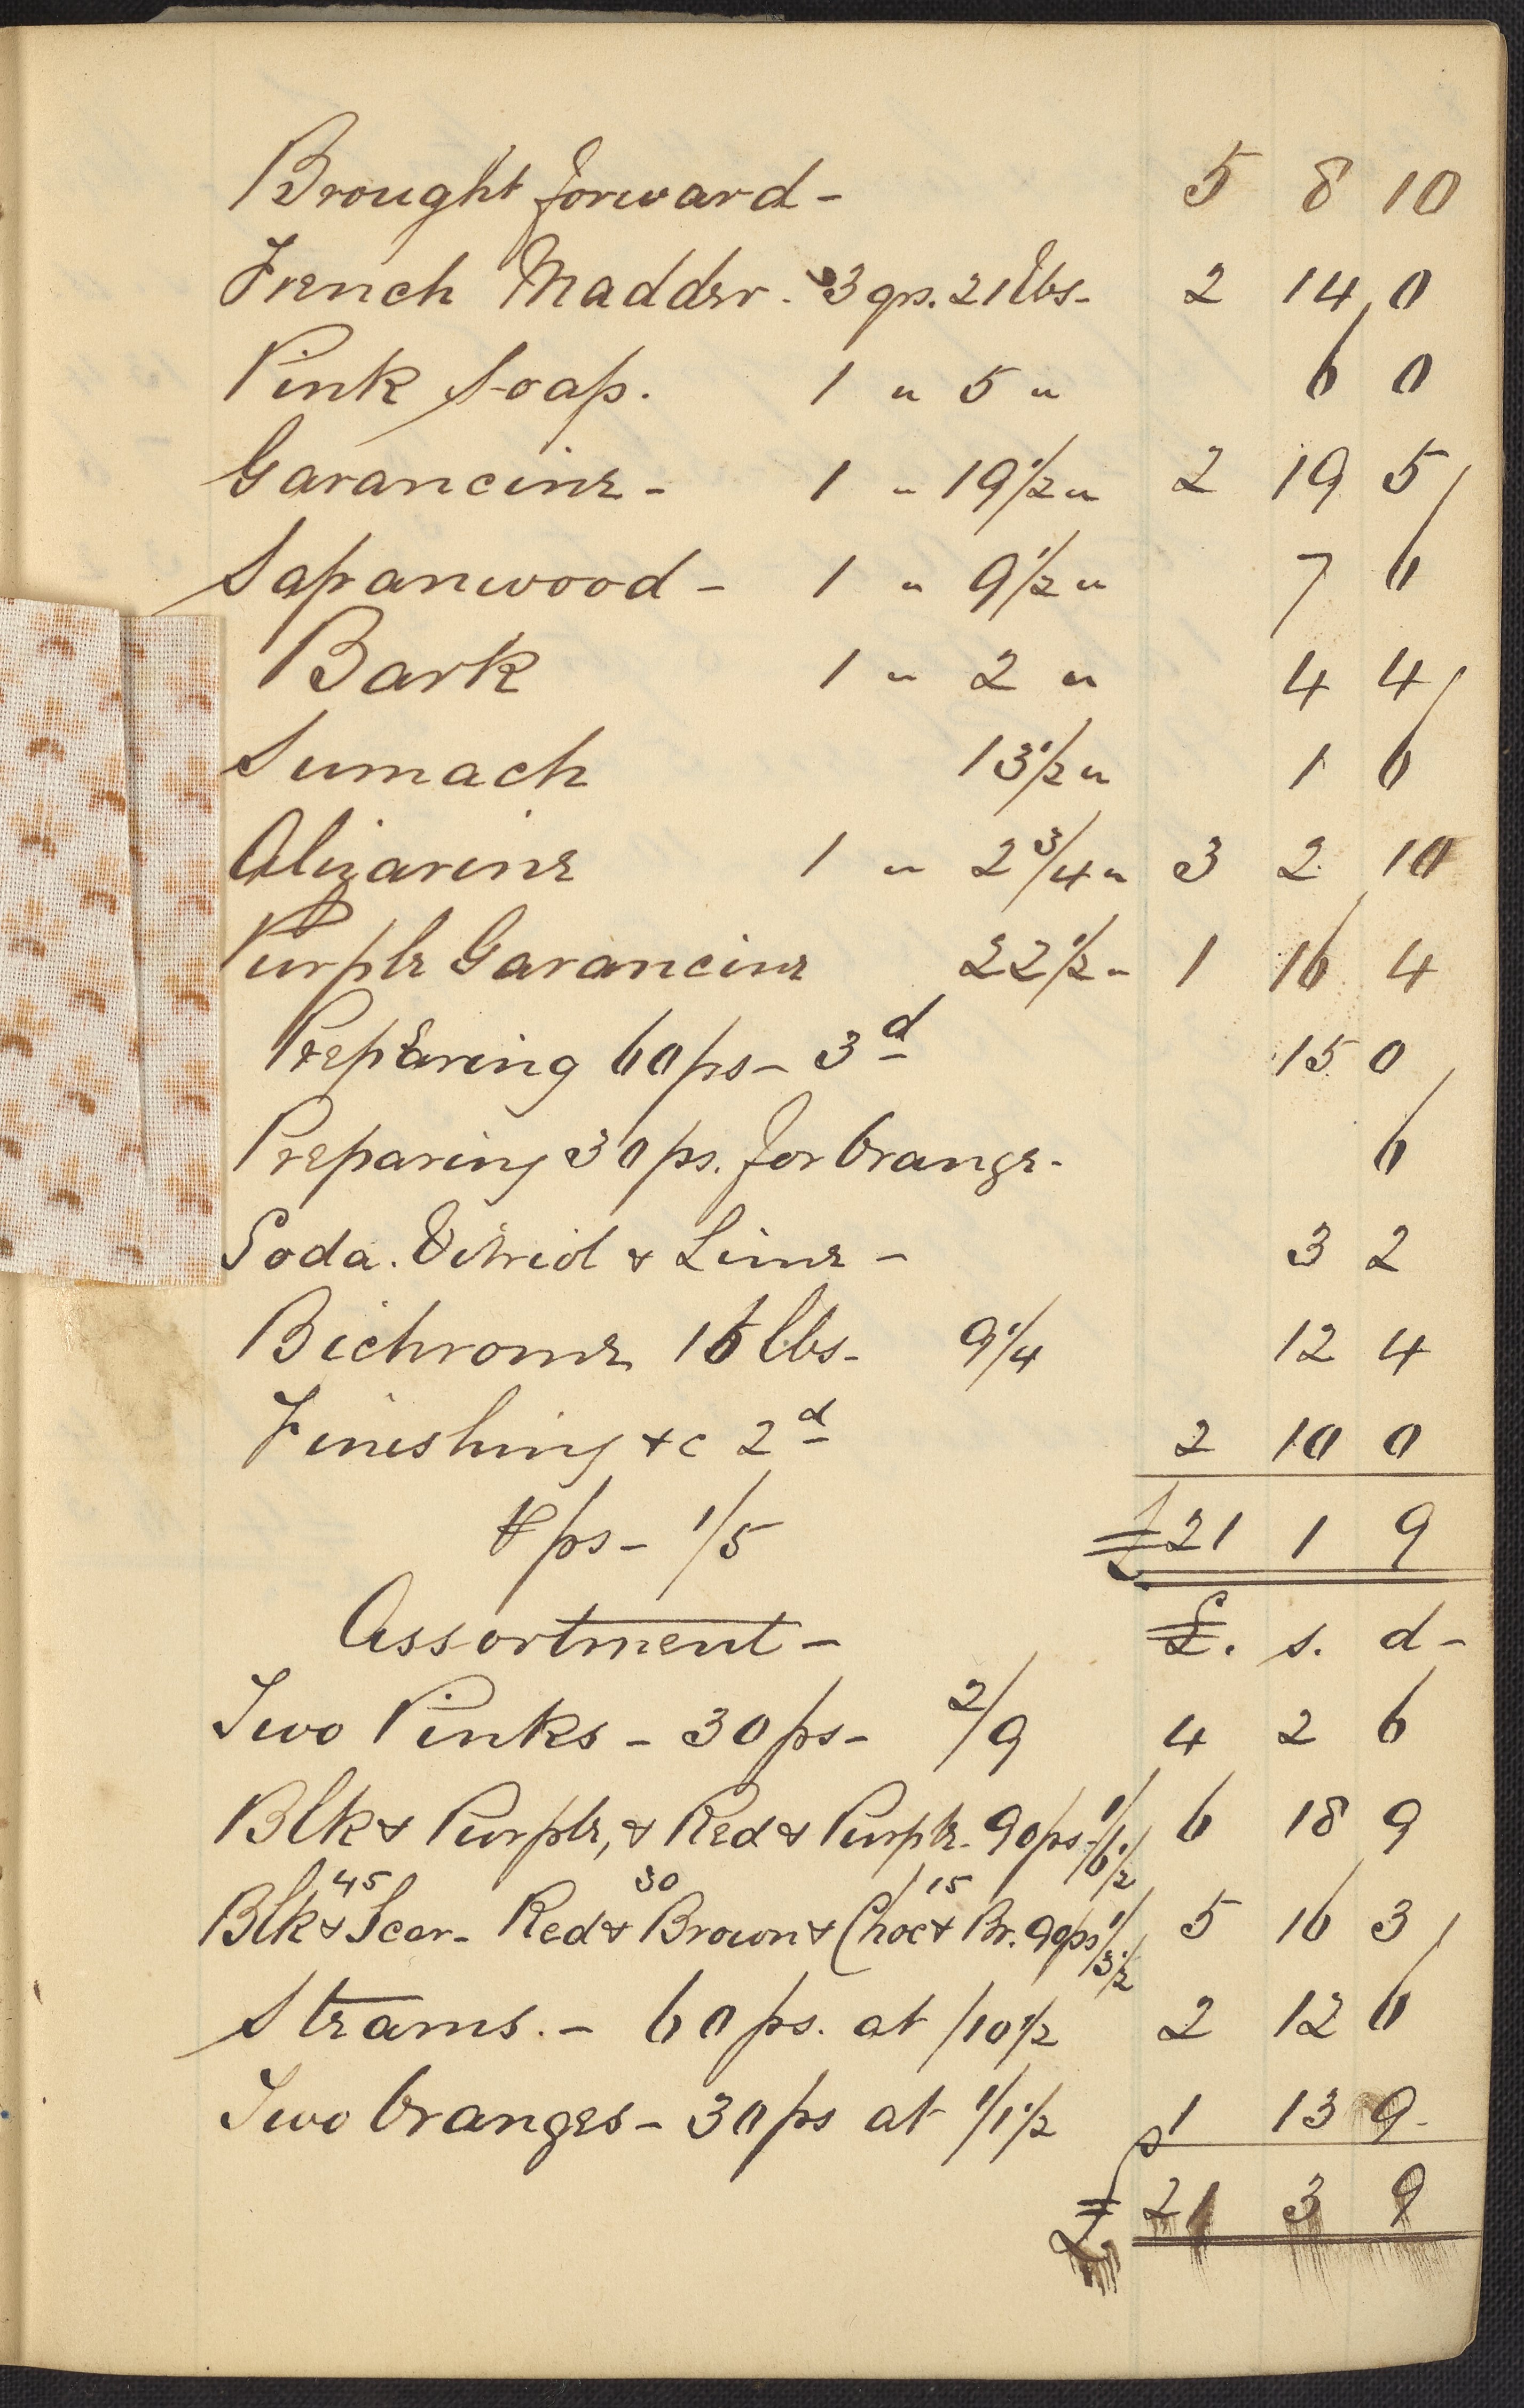 Brought forward - 5 8 10
French Madder. 3 qrs. 21 lbs- 2 14 0
Pink Soap. 1 " 5 " 6 0
Garancine - 1 " 19 1/2 " 2 19 5
Sapanwood - 1 " 9 1/2 " 7 6
Bark 1 " 2 " 4 4
Sumach 13 1/2 " 1 6
Alizarine 1 " 2 3/4 " 3 2 10
Purple Garancine 22 1/2 " 1 16 4
Preparing 60 ps - 3d 15 0
Preparing 30 ps. for Orange - 6
Soda. Vitriol & Lime - 3 2
Bichrome 16 lbs - 9 1/4 12 4
Finishing &c 2d 2 10 0
℔ ps - 1/5 £21 1 9
Assortment - £. s. d -
Two Pinks - 30 ps - 2/9 4 2 6
Blk & Purple, & Red & Purple - 90 ps - 1/6 1/2 6 18 9
45 30 15
Blk & Scar - Red & Brown & Choc & Br. 90 ps 1/3 1/2 5 16 3
Steams. - 60 ps. at /10 1/2 2 12 6
Two Oranges - 30 ps at 1/1 1/2 1 13 9 -
£ 21 3 9